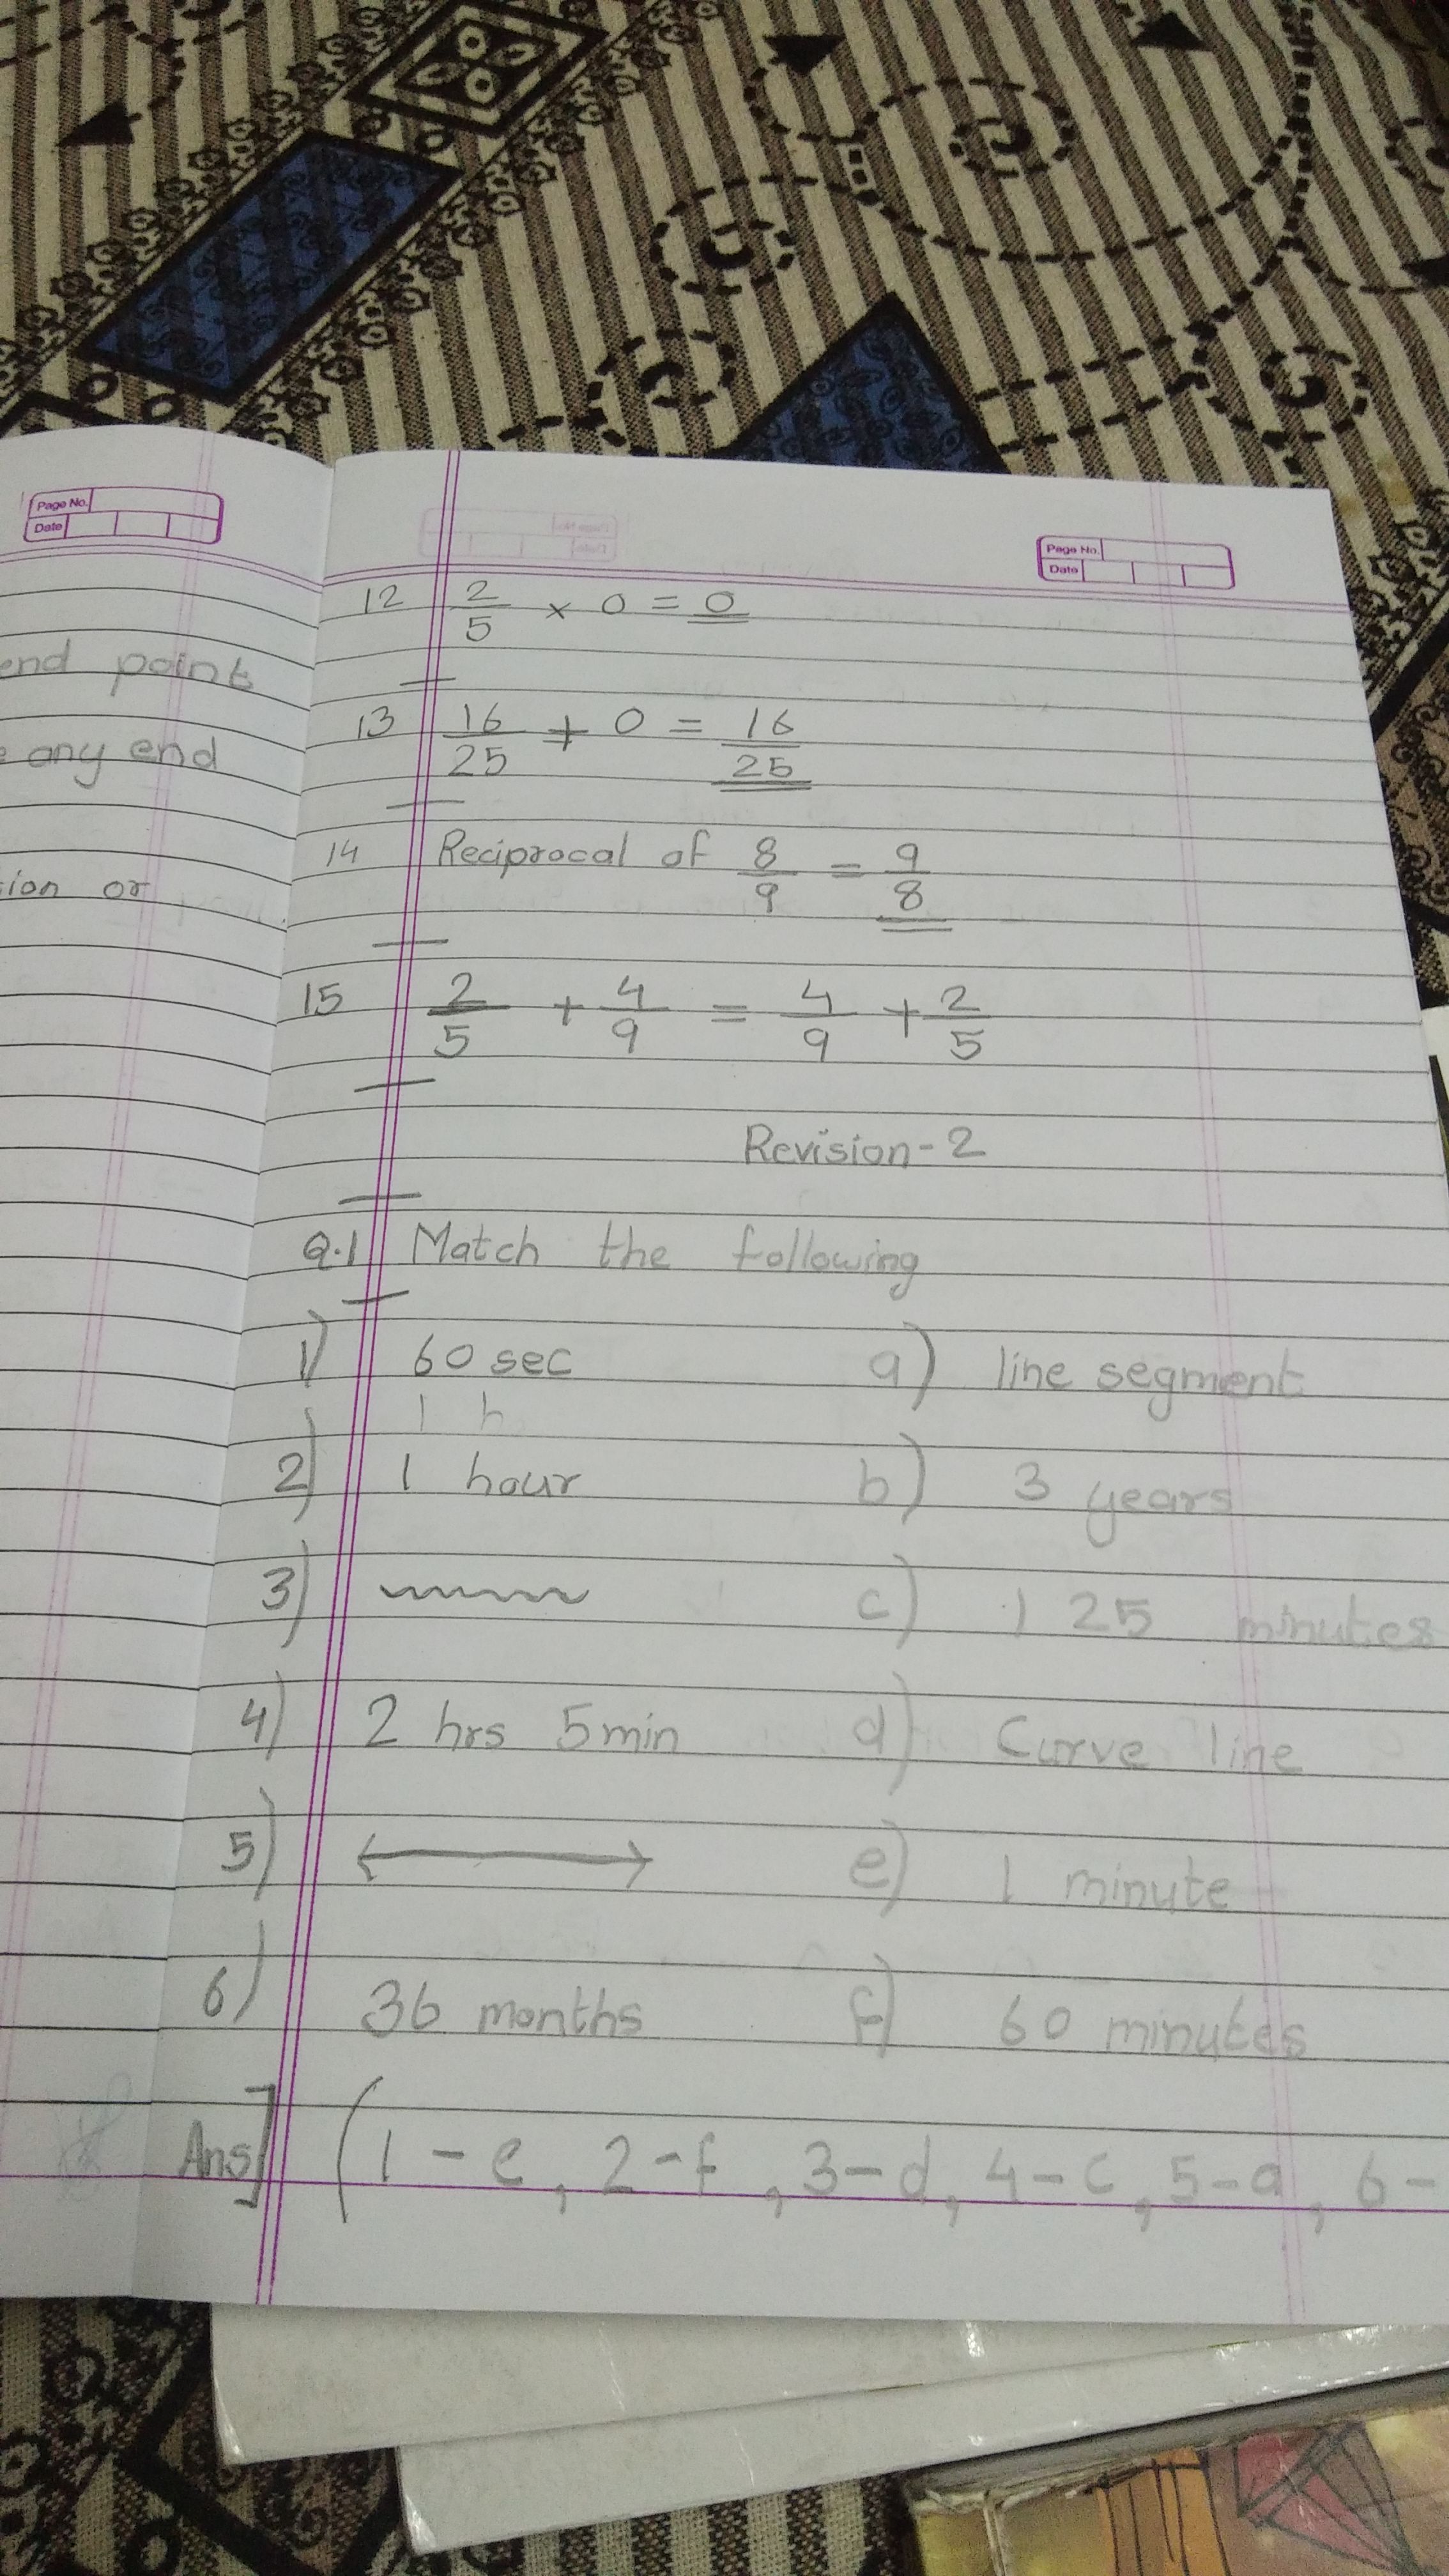 Page No.
Date
end point
any end
sion or
Page No.
Date
12 2/5 × 0 = 0
13 16/25 + 0 = 16/25
14 Reciprocal of 8/9 = 9/8
15 2/5 + 4/9 = 4/9 + 2/5
Revision-2
Q.1 Match the following
1) 60 sec a) line segment
1 h
2) 1 hour b) 3 years
3) c) 125 minutes
4) 2 hrs 5 min d) Curve line
5) e) 1 minute
6) 36 months f) 60 minutes
Ans] (1-e, 2-f, 3-d, 4-c, 5-a, 6-